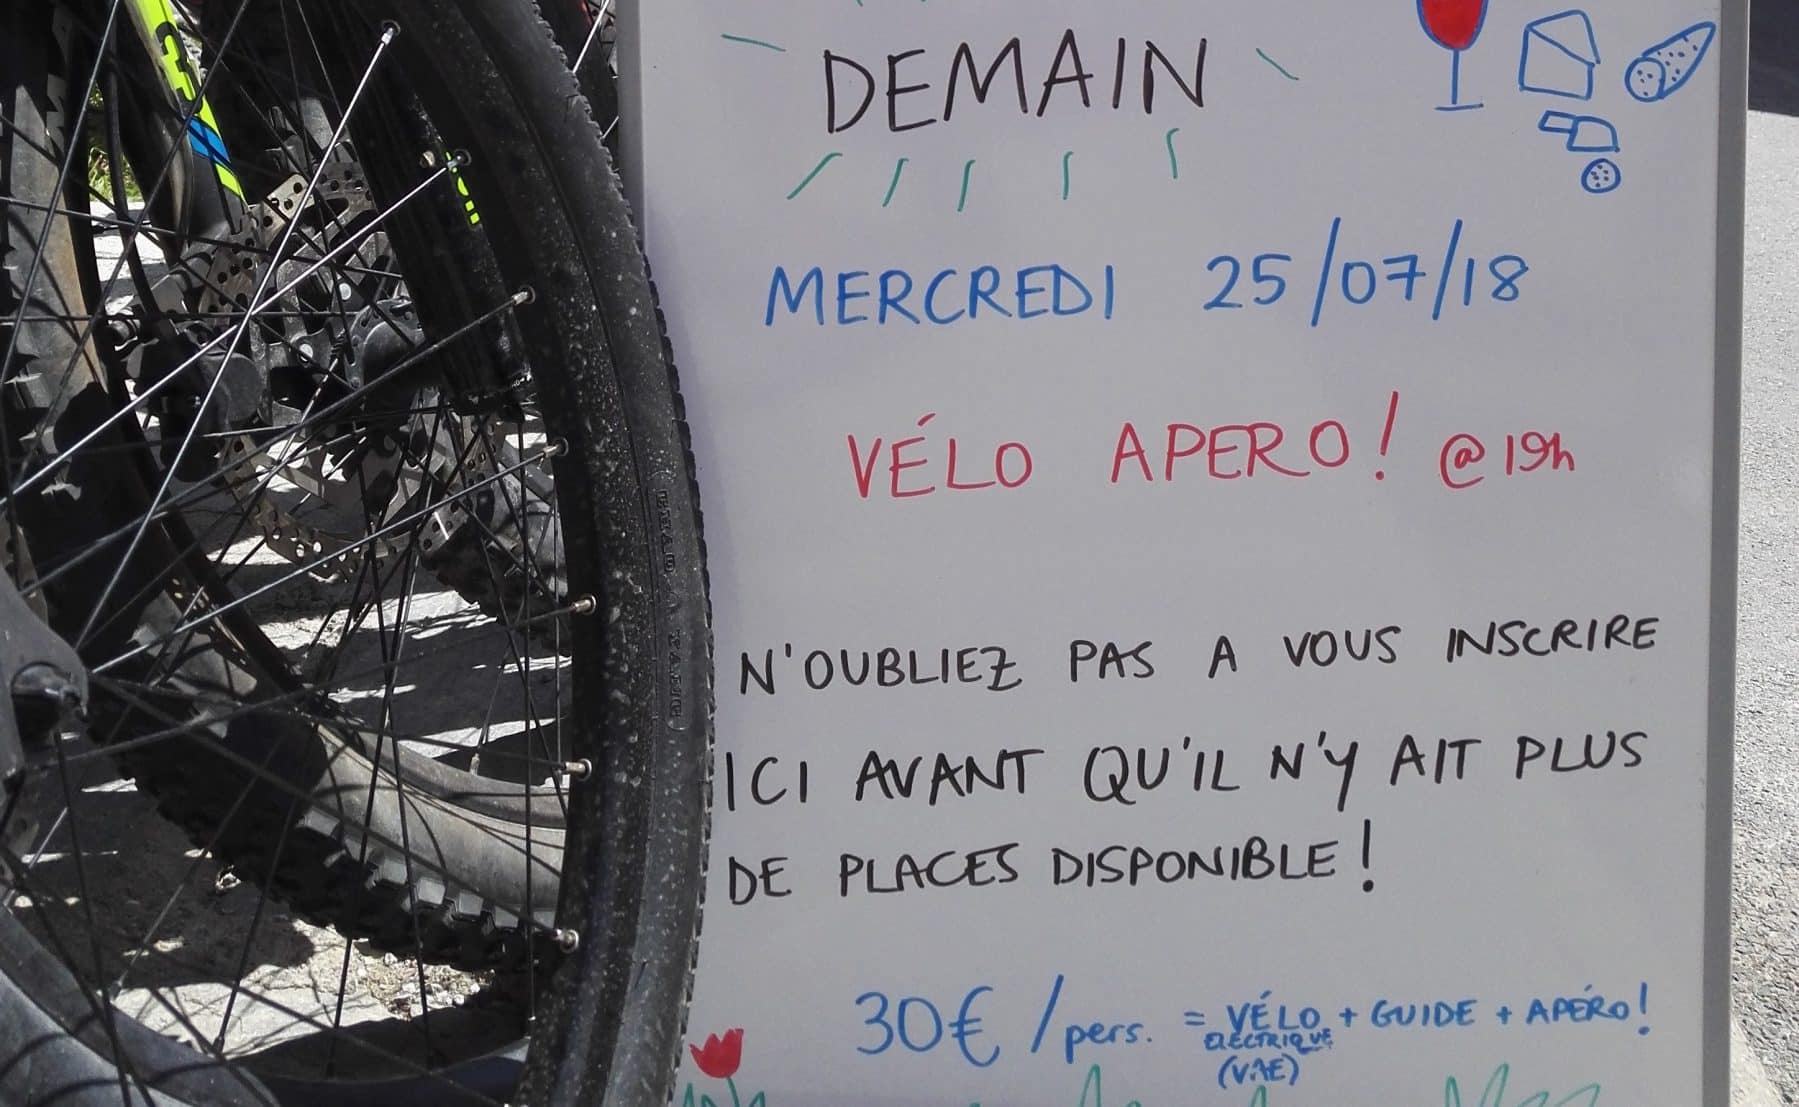 DEMAIN
MERCREDI 25/07/18
VÉLO APERO! @ 19h
N'OUBLIEZ PAS A VOUS INSCRIRE
ICI AVANT QU'IL N'Y AIT PLUS
DE PLACES DISPONIBLE!
30€/pers. = VÉLO + GUIDE + APÉRO!
ELECTRIQUE
(VAE)